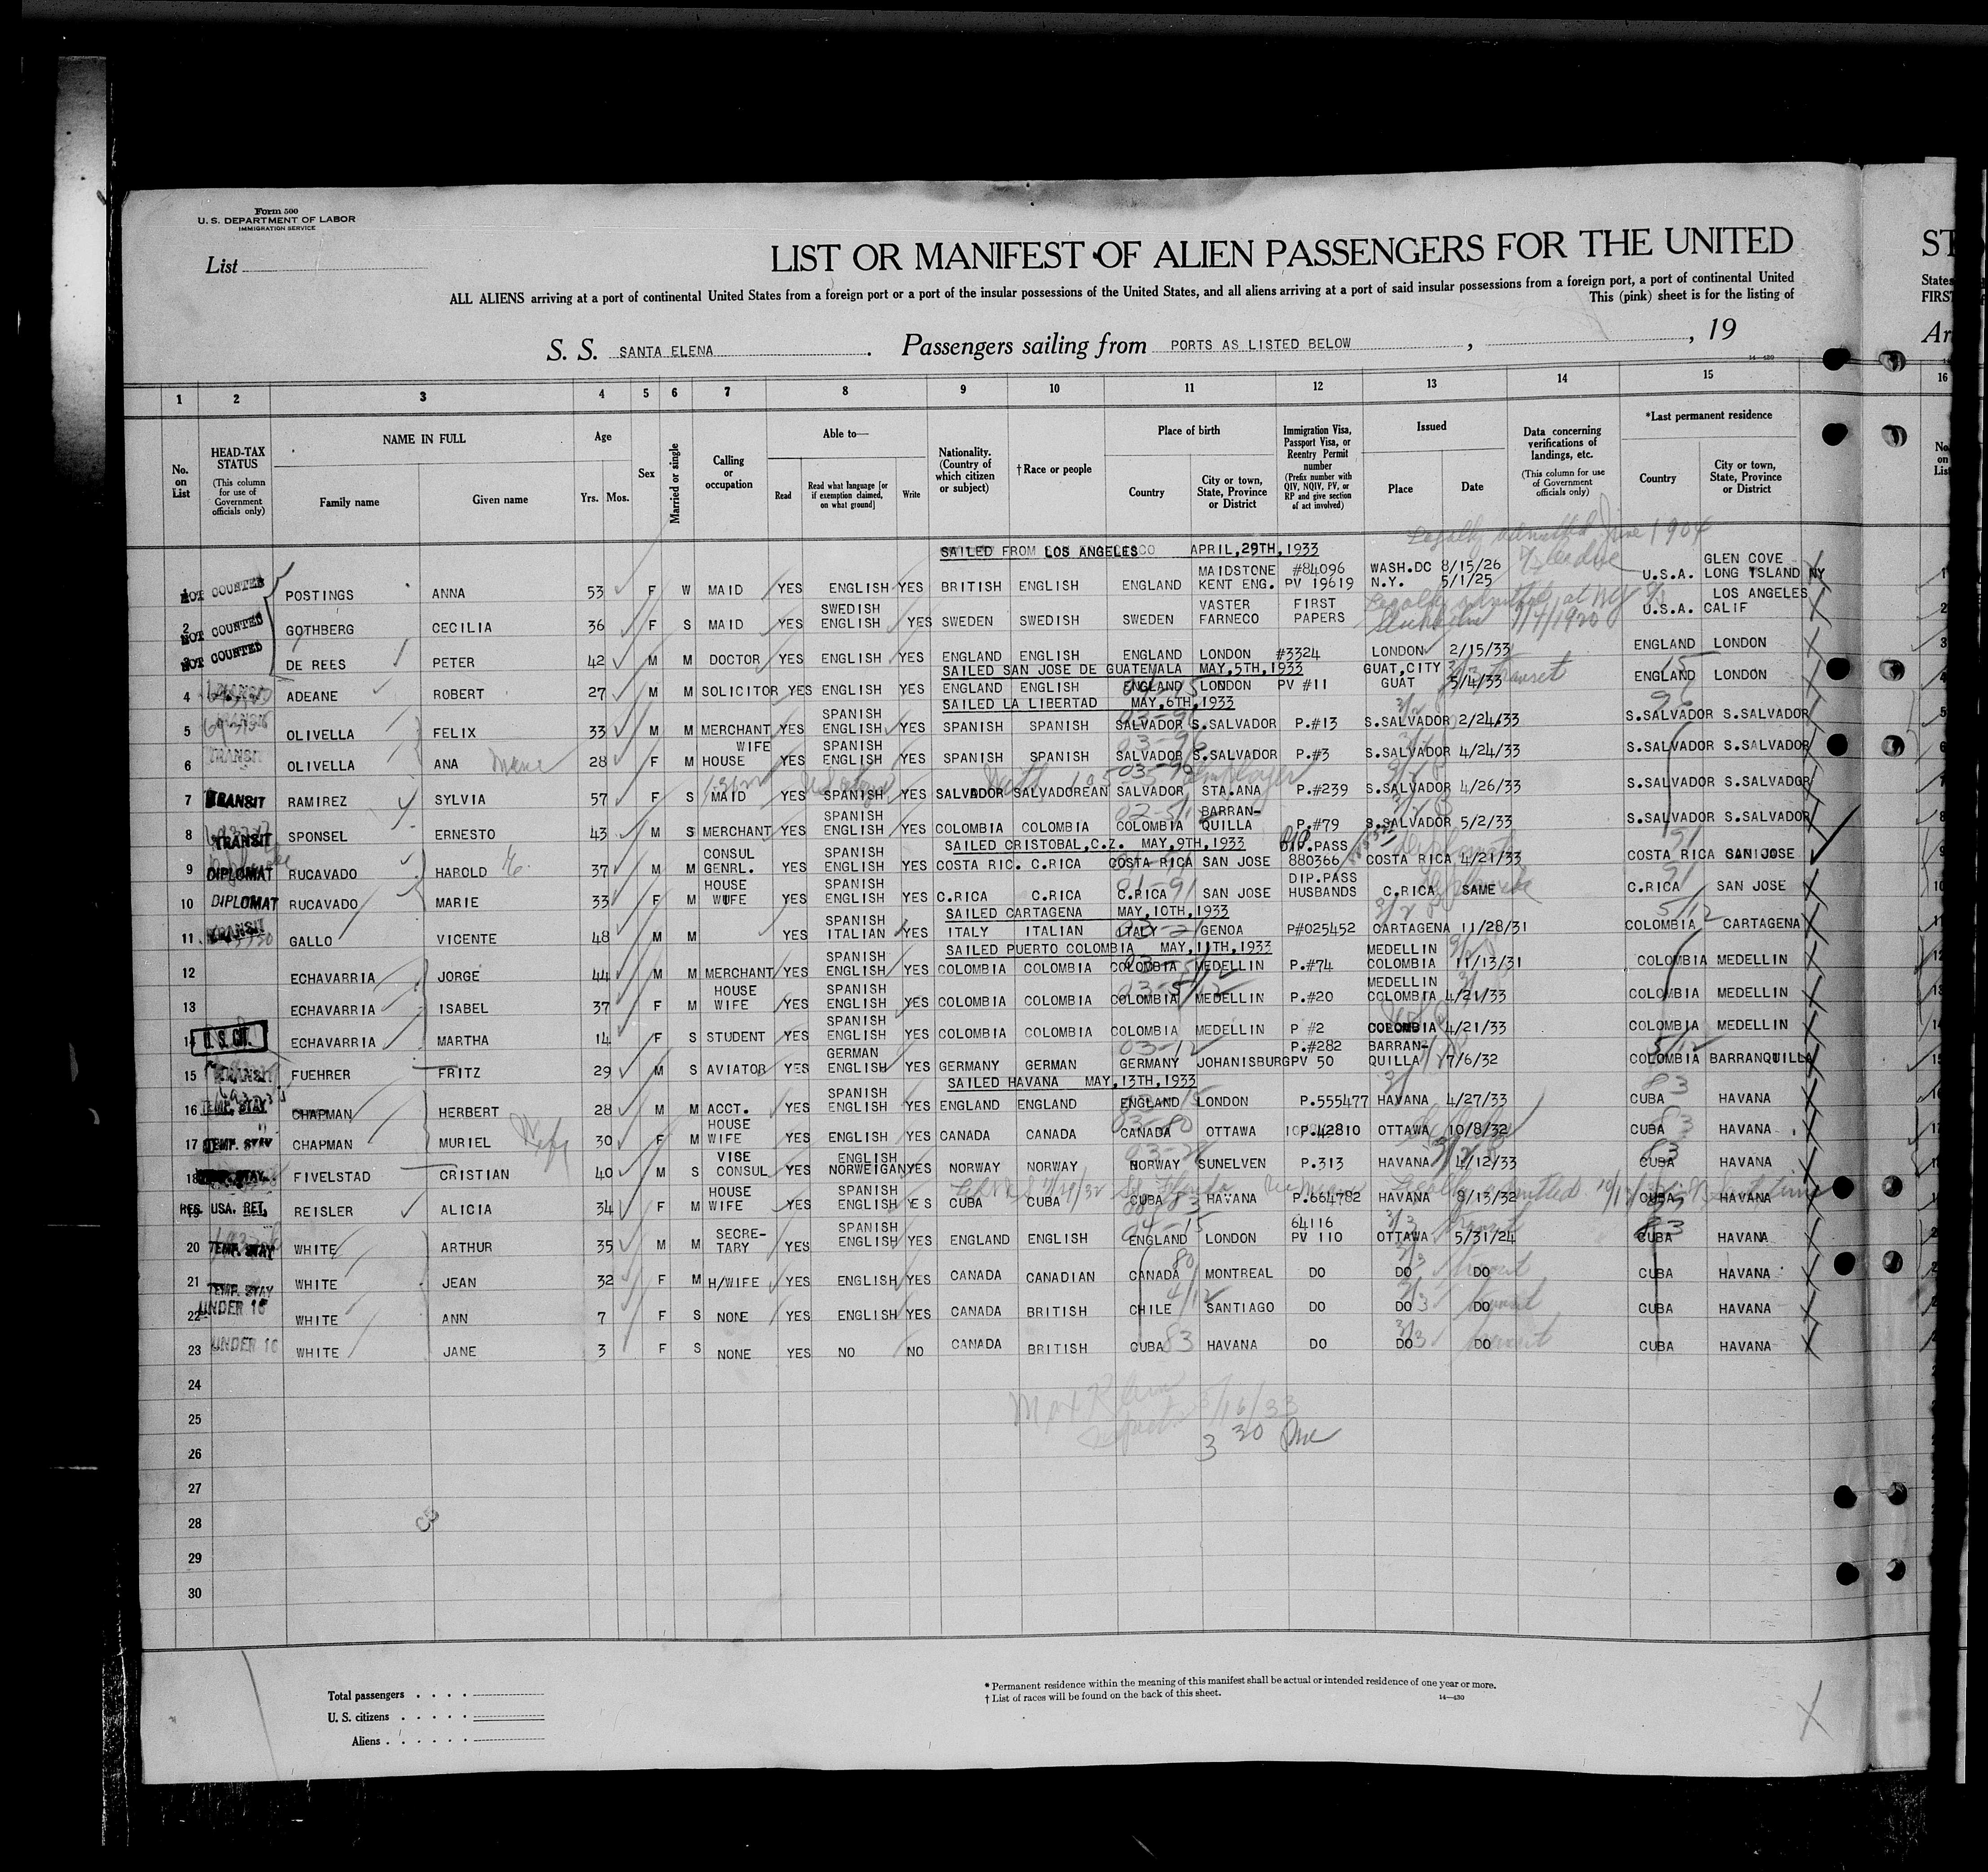 Form 500
U. S. DEPARTMENT OF LABOR
IMMIGRATION SERVICE
List
LIST OR MANIFEST OF ALIEN PASSENGERS FOR THE UNITED
ST
ALL ALIENS arriving at a port of continental United States from a foreign port or a port of the insular possessions of the United States, and all aliens arriving at a port of said insular possessions from a foreign port, a port of continental United
States
This (pink) sheet is for the listing of
FIRST
S. S. SANTA ELENA. Passengers sailing from PORTS AS LISTED BELOW, , 19
Ar
14—430
1 2 3 4 5 6 7 8 9 10 11 12 13 14 15 16
No. on List
HEAD-TAX STATUS (This column for use of Government officials only)
NAME IN FULL Family name Given name
Age Yrs. Mos.
Sex
Married or single
Calling or occupation
Able to— Read Read what language [or if exemption claimed, on what ground] Write
Nationality. (Country of which citizen or subject)
† Race or people
Place of birth Country City or town, State, Province or District
Immigration Visa, Passport Visa, or Reentry Permit number (Prefix number with QIV, NQIV, PV, or RP and give section of act involved)
Issued Place Date
Data concerning verifications of landings, etc. (This column for use of Government officials only)
*Last permanent residence Country City or town, State, Province or District
No. on List
Legally admitted June 1904
SAILED FROM LOS ANGELES APRIL,29TH,1933
1 NOT COUNTED POSTINGS ANNA 53 F W MAID YES ENGLISH YES BRITISH ENGLISH ENGLAND MAIDSTONE KENT ENG. #84096 PV 19619 WASH.DC 8/15/26 N.Y. 5/1/25 U.S.A. GLEN COVE LONG ISLAND NY
2 NOT COUNTED GOTHBERG CECILIA 36 F S MAID YES SWEDISH ENGLISH YES SWEDEN SWEDISH SWEDEN VASTER FARNECO FIRST PAPERS Legally admitted at NY 1/7/1920 U.S.A. LOS ANGELES CALIF
3 NOT COUNTED DE REES PETER 42 M M DOCTOR YES ENGLISH YES ENGLAND ENGLISH ENGLAND LONDON #3324 LONDON 2/15/33 ENGLAND LONDON
SAILED SAN JOSE DE GUATEMALA MAY,5TH,1933
4 ADEANE ROBERT 27 M M SOLICITOR YES ENGLISH YES ENGLAND ENGLISH ENGLAND LONDON PV #11 GUAT,CITY GUAT 5/4/33 transit ENGLAND LONDON 15
SAILED LA LIBERTAD MAY,6TH,1933
5 OLIVELLA FELIX 33 M M MERCHANT YES SPANISH ENGLISH YES SPANISH SPANISH SALVADOR S.SALVADOR P.#13 S.SALVADOR 2/24.33 S.SALVADOR S.SALVADOR
6 TRANSIT OLIVELLA ANA 28 F M HOUSE WIFE YES SPANISH ENGLISH YES SPANISH SPANISH SALVADOR S.SALVADOR P.#3 S.SALVADOR 4/24/33 S.SALVADOR S.SALVADOR
7 TRANSIT RAMIREZ SYLVIA 57 F S MAID YES SPANISH YES SALVADOR SALVADOREAN SALVADOR STA.ANA P.#239 S.SALVADOR 4/26/33 S.SALVADOR S.SALVADOR
8 TRANSIT SPONSEL ERNESTO 43 M S MERCHANT YES SPANISH ENGLISH YES COLOMBIA COLOMBIA COLOMBIA BARRAN-QUILLA P.#79 S.SALVADOR 5/2/33 S.SALVADOR S.SALVADOR
SAILED CRISTOBAL,C.Z. MAY,9TH,1933
9 DIPLOMAT RUCAVADO HAROLD 37 M M CONSUL GENRL. YES SPANISH ENGLISH YES COSTA RIC. C.RICA COSTA RICA SAN JOSE DIP.PASS 880366 COSTA RICA 4/21/33 COSTA RICA SAN JOSE
10 DIPLOMAT RUCAVADO MARIE 33 F M HOUSE WIFE YES SPANISH ENGLISH YES C.RICA C.RICA C.RICA SAN JOSE DIP.PASS HUSBANDS C.RICA SAME C.RICA SAN JOSE
SAILED CARTAGENA MAY,10TH,1933
11 TRANSIT GALLO VICENTE 48 M M YES SPANISH ITALIAN YES ITALY ITALIAN ITALY GENOA P#025452 CARTAGENA 11/28/31 COLOMBIA CARTAGENA
SAILED PUERTO COLOMBIA MAY,11TH,1933
12 ECHAVARRIA JORGE 44 M M MERCHANT YES SPANISH ENGLISH YES COLOMBIA COLOMBIA COLOMBIA MEDELLIN P.#74 MEDELLIN COLOMBIA 11/13/31 COLOMBIA MEDELLIN
13 ECHAVARRIA ISABEL 37 F M HOUSE WIFE YES SPANISH ENGLISH YES COLOMBIA COLOMBIA COLOMBIA MEDELLIN P.#20 MEDELLIN COLOMBIA 4/21/33 COLOMBIA MEDELLIN
14 U.S. CIT. ECHAVARRIA MARTHA 14 F S STUDENT YES SPANISH ENGLISH YES COLOMBIA COLOMBIA COLOMBIA MEDELLIN P #2 COLOMBIA 4/21/33 COLOMBIA MEDELLIN
15 TRANSIT FUEHRER FRITZ 29 M S AVIATOR YES GERMAN ENGLISH YES GERMANY GERMAN GERMANY JOHANISBURG P.#282 PV 50 BARRAN-QUILLA 7/6/32 COLOMBIA BARRANQUILLA
SAILED HAVANA MAY,13TH,1933
16 TEMP. STAY CHAPMAN HERBERT 28 M M ACCT. YES SPANISH ENGLISH YES ENGLAND ENGLAND ENGLAND LONDON P.555477 HAVANA 4/27/33 CUBA HAVANA
17 TEMP. STAY CHAPMAN MURIEL 30 F M HOUSE WIFE YES ENGLISH YES CANADA CANADA CANADA OTTAWA P.42810 OTTAWA 10/8/32 CUBA HAVANA
18 TEMP. STAY FIVELSTAD CRISTIAN 40 M S VISE CONSUL YES ENGLISH NORWEIGAN YES NORWAY NORWAY NORWAY SUNELVEN P.313 HAVANA 4/12/33 CUBA HAVANA
19 RES. USA. RET. REISLER ALICIA 34 F M HOUSE WIFE YES SPANISH ENGLISH YES CUBA CUBA CUBA HAVANA P.664782 HAVANA 8/13/32 Legally admitted CUBA HAVANA
20 TEMP. STAY WHITE ARTHUR 35 M M SECRE-TARY YES SPANISH ENGLISH YES ENGLAND ENGLISH ENGLAND LONDON 64116 PV 110 OTTAWA 5/31/24 transit CUBA HAVANA
21 TEMP. STAY WHITE JEAN 32 F M H/WIFE YES ENGLISH YES CANADA CANADIAN CANADA MONTREAL DO DO DO transit CUBA HAVANA
22 UNDER 16 WHITE ANN 7 F S NONE YES ENGLISH YES CANADA BRITISH CHILE SANTIAGO DO DO DO transit CUBA HAVANA
23 UNDER 16 WHITE JANE 3 F S NONE YES NO NO CANADA BRITISH CUBA HAVANA DO DO DO transit CUBA HAVANA
24
25
5/16/33
26
3 30 Pm
27
28
29
30
Total passengers . . . .
U. S. citizens . . . . .
Aliens . . . . . .
* Permanent residence within the meaning of this manifest shall be actual or intended residence of one year or more.
† List of races will be found on the back of this sheet.
14—430